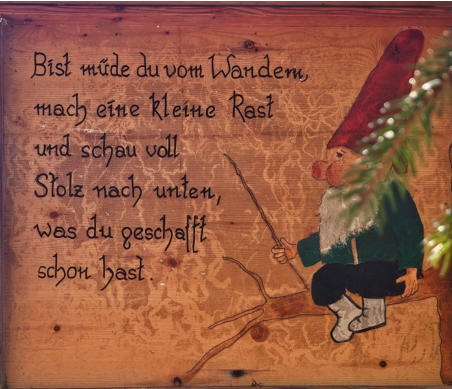 Bist müde du vom Wandern,
mach eine kleine Rast
und schau voll
Stolz nach unten,
was du geschafft
schon hast.